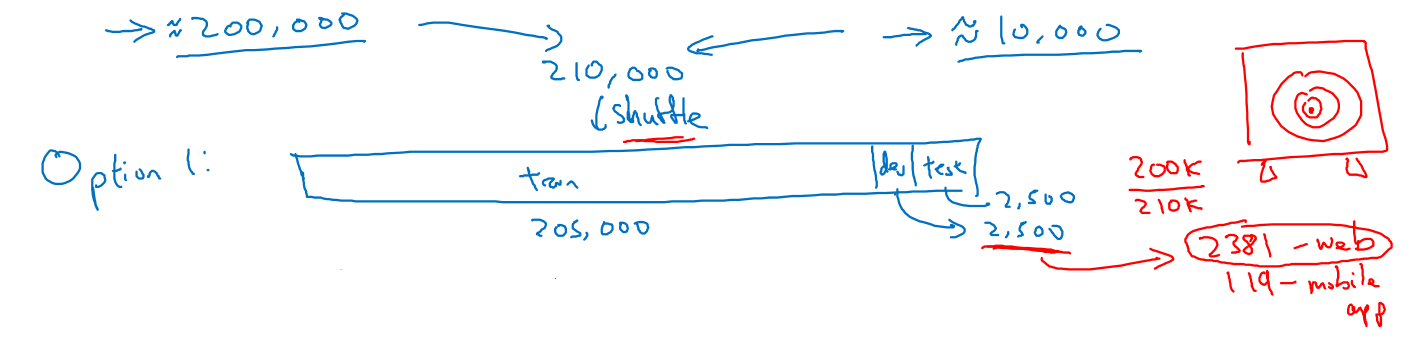 → ≈ 200,000 → ← → ≈ 10,000
210,000
↓ shuffle
Option 1:
train dev test
205,000
2,500
2,500
200K
210K
2381 - web
119 - mobile
app